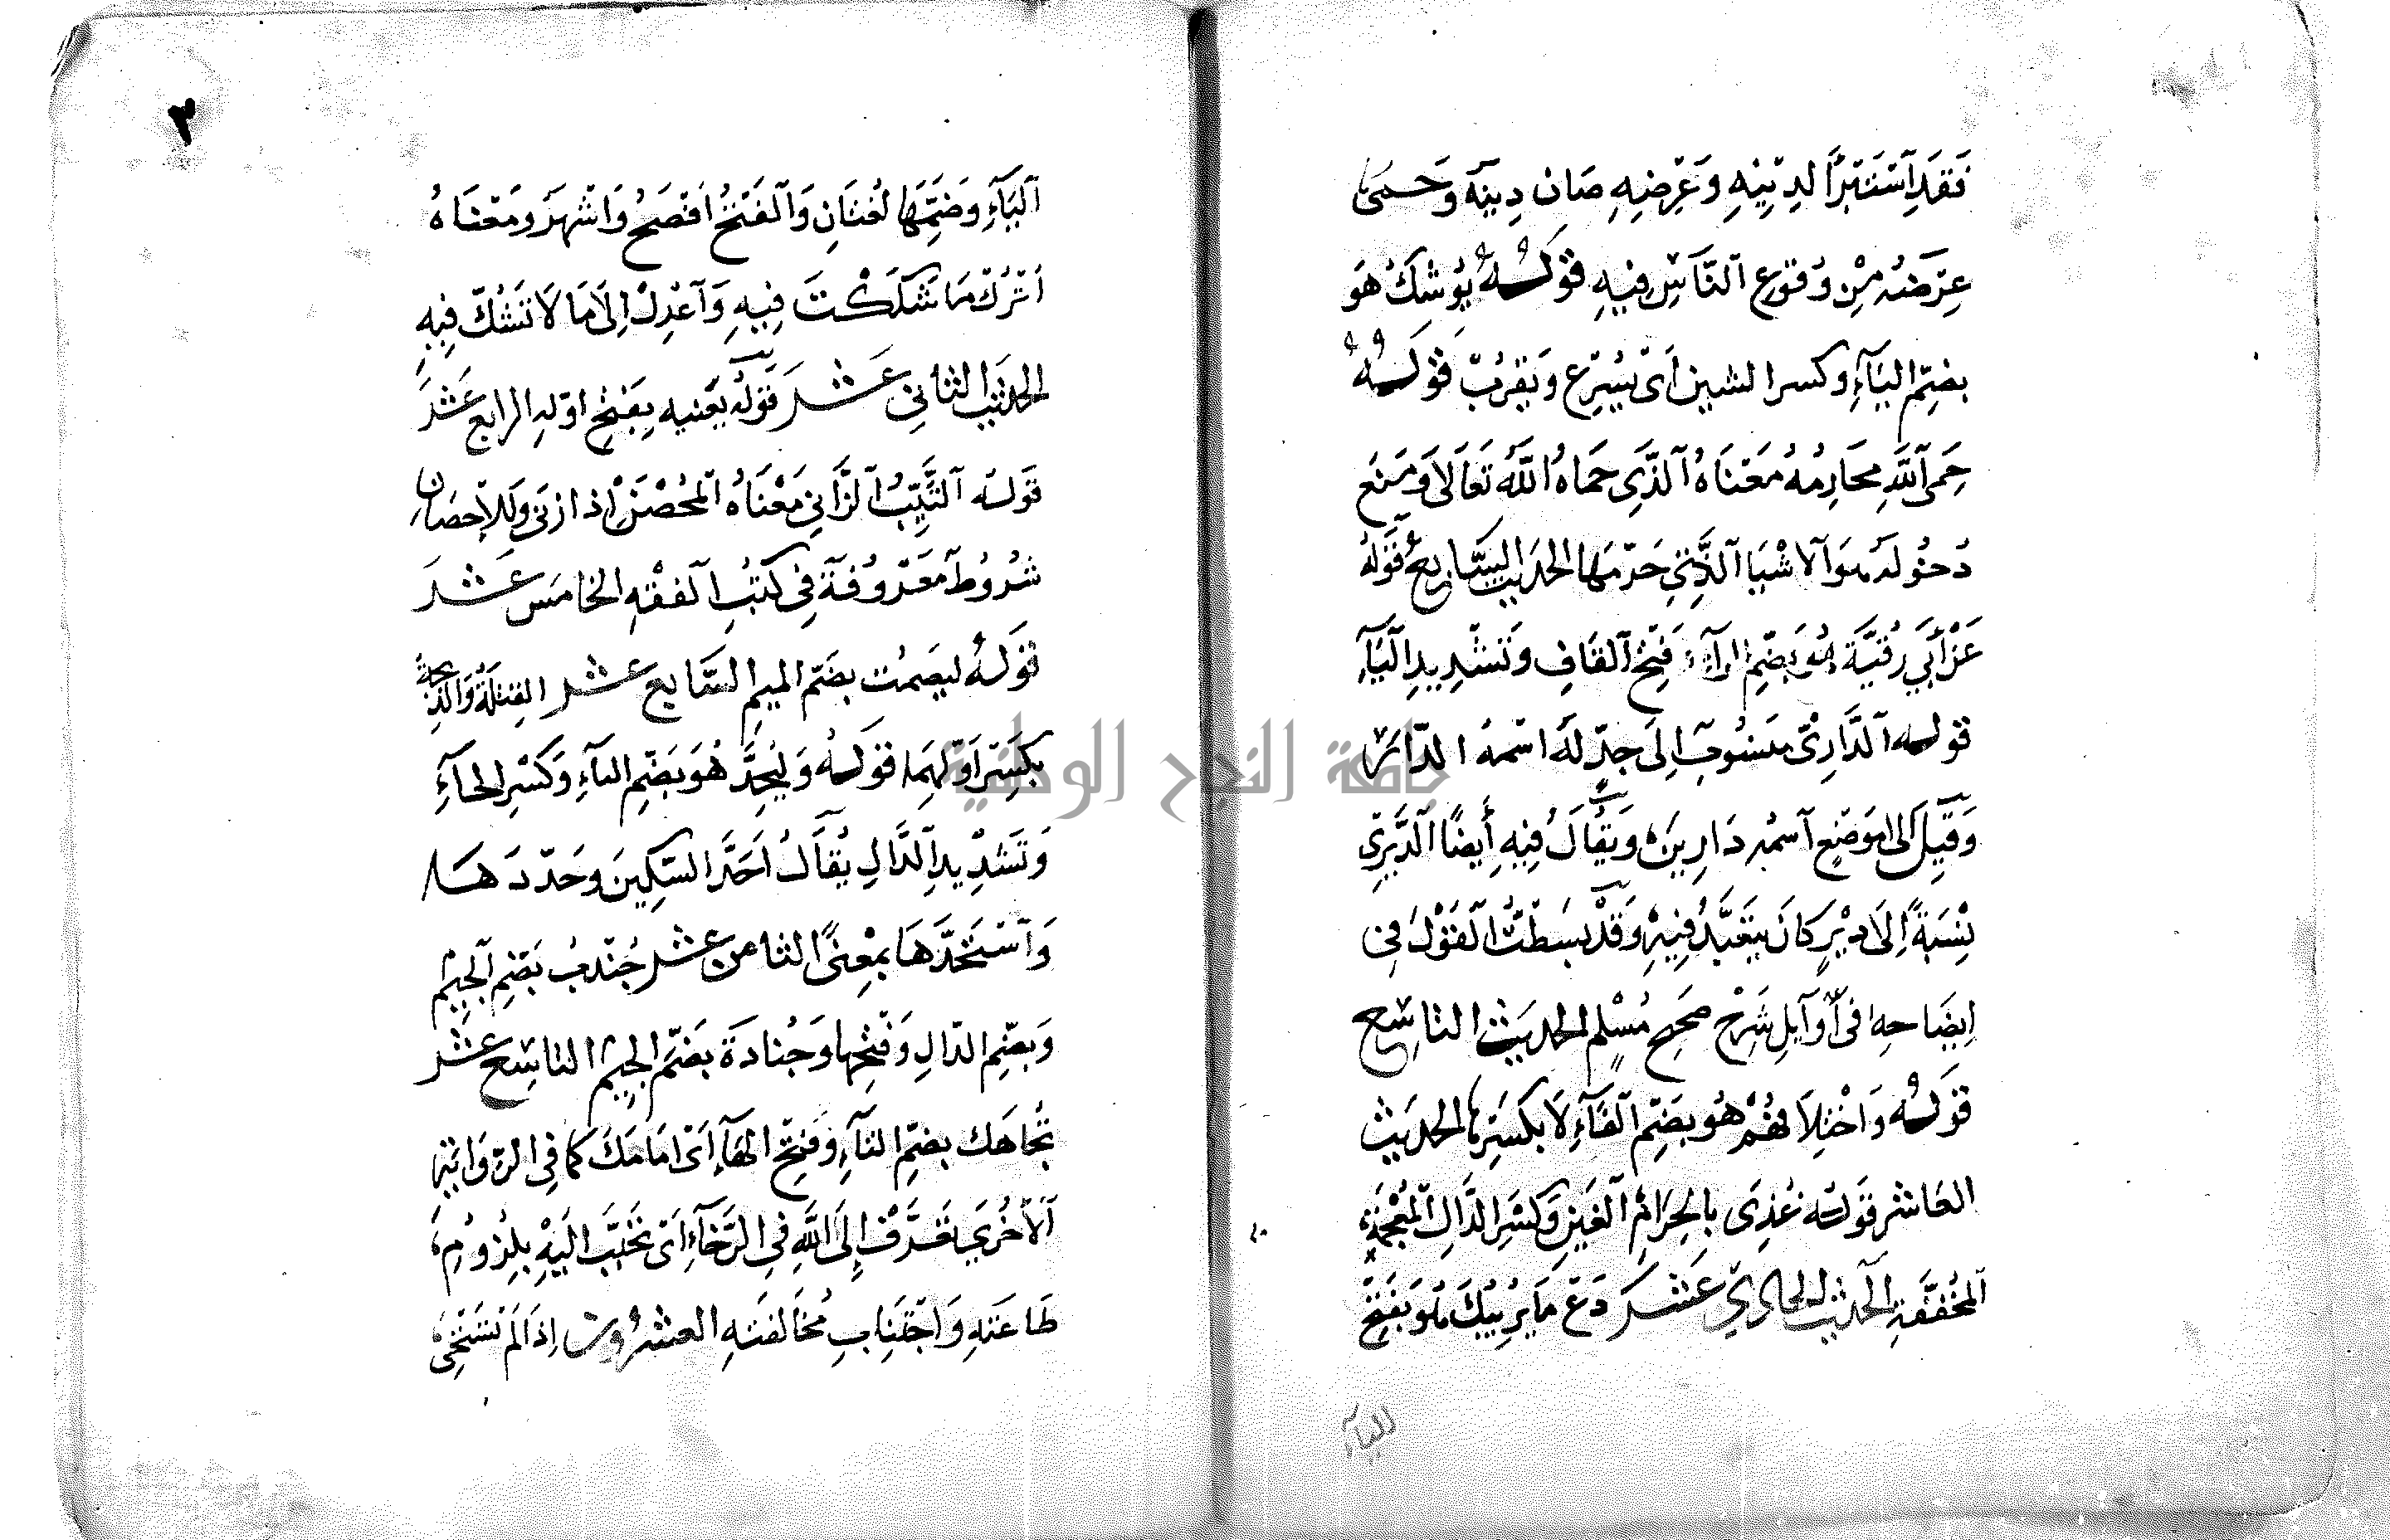 فَقَدِ اسْتَبْرَأَ لِدِينِهِ وَعِرْضِهِ صَانَ دِينَهُ وَحَمَى
عِرْضَهُ مِنْ وُقُوعِ النَّاسِ فِيهِ قَوْلُهُ يُوشِكُ هُوَ
بِضَمِّ الْيَآءِ وكسر الشين أَىْ يُسْرِعُ وَيَقْرُبُ قَوْلُهُ
حِمَى اللَّهِ مَحَارِمُهُ مَعْنَاهُ الَّذِي حَمَاهُ اللَّهُ تَعَالَى وَمَنَعَ
دُخُولَهُ هُوَ الاشْيَا الَّتِي حَرَّمَهَا الحديث السَّابِعُ قَوْلُهُ
عَنْ أَبِي رُقَيَّةَ هُوَ بِضَمِّ الرآءِ وَ فَتْحِ الْقَافِ وَتَشْدِيدِ الْيَآءِ
قوله الدَّارِيُّ مَنْسُوبٌ إِلَى جدٍّ لَهُ اسْمُهُ الدَّارُ
وَقِيلَ إلى مَوْضِعٍ اسْمُه دَارِينَ وَيُقَالُ فِيهِ أَيضًا الدَّيْرِي
نِسْبَةً إِلَى دَيْرٍ كَانَ يَتَعَبَّدُ فِيهِ وَقَدْ بَسَطْتُ الْقَوْلَ فِى
اِيضَاحِهِ فى أَوَآيِلِ شَرْحِ صَحِيحِ مُسْلِم الحديث التاسِع
قَوْلُهُ وَاخْتِلاَفُهُمْ هُوَ بِضَمِّ الْفَآءِ لَا بِكَسْرِهَا الحديث
العَاشر قَوْلُهُ غُذِىَ بِالْحَرَامِ الْغَيْنِ وَكَسْرِ الذَّالِ الْمُعْجَمَةِ
الْمُخَفَّفَةِ الحديث الحادي عَشَر دَعْ مَا يَرِيبُكَ هُوَ بِفَتْحِ
للياء
٣
الْيَآءِ وَضَمِّهَا لُغَتَانِ وَالْفَتْحُ افْصَحُ وَاشْهَرُ وَمَعْنَاهُ
اتْرُكْ مَا شَكَكْتَ فِيهِ وَاعْدِلْ إِلَى مَا لَا تَشُكُّ فِيهِ
الحديث الثانِي عَشَر قَوْلُهُ يَعْنِيه بِفَتْحِ اوّلِه الرابع عَشَر
قَوْلُه الثَّيِّبُ الزَّانِي مَعْنَاهُ الْمُحْصَنُ إِذا زَنَى وَلِلْإحْصَانِ
شُرُوطٌ مَعْرُوفَةٌ فِي كُتُبِ الْفِقْهِ الخَامِس عَشَر
قَوْلُهُ لِيَصْمُت بِضَمِّ الميمِ السَّابع عَشر القِتْلَةُ وَالذِّبْحَةُ
بِكَسْرِ أَوَّلِهِمَا قَوْلُهُ وَلْيُحِدَّ هُوَ بِضَمِّ اليآءِ وَكَسْرِ الحآءِ
وَتَشْدِيدِ الدَّالِ يُقَالُ أَحَدَّ السِّكِينَ وَحَدَّدَهَا
وَاسْتَحَدَّهَا بِمَعْنًى الثَامن عشر جُنْدُب بِضَمِّ الْجِيم
وَبِضَمِّ الدّالِ وَفَتْحِهَا وَجُنَادَة بِضَمِّ الْجِيمِ التاسع عَشَر
تُجَاهَك بِضَمِّ التآءِ وَفَتْحِ الهَآءِ اىْ امَامَكَ كَمَا فِي الرِّوَايَةِ
الْأُخْرَى تَعَرَّفْ إِلَى اللَّهِ فِي الرَّخَآءِ أَىْ تَحَبَّبْ إلَيْهِ بِلُزُومِ
طَاعَتِهِ وَاجْتِنَابِ مُخَالَفَتِهِ العشرُون إِذَا لَمْ تَسْتَحْيِ